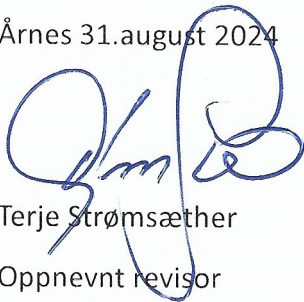 Årnes 31.august 2024
Terje Strømsæther
Oppnevnt revisor